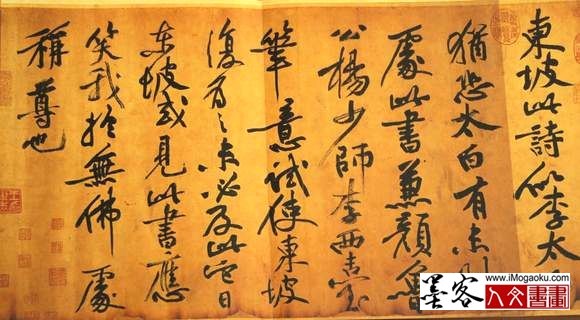 東坡此詩似李太
猶恐太白有未到
處此書兼顏魯
公楊少師李西臺
筆意試使東坡
復為之未必及此它日
東坡或見此書應
笑我於無佛處
稱尊也
www.iMogaoku.com
墨客
人文書畫